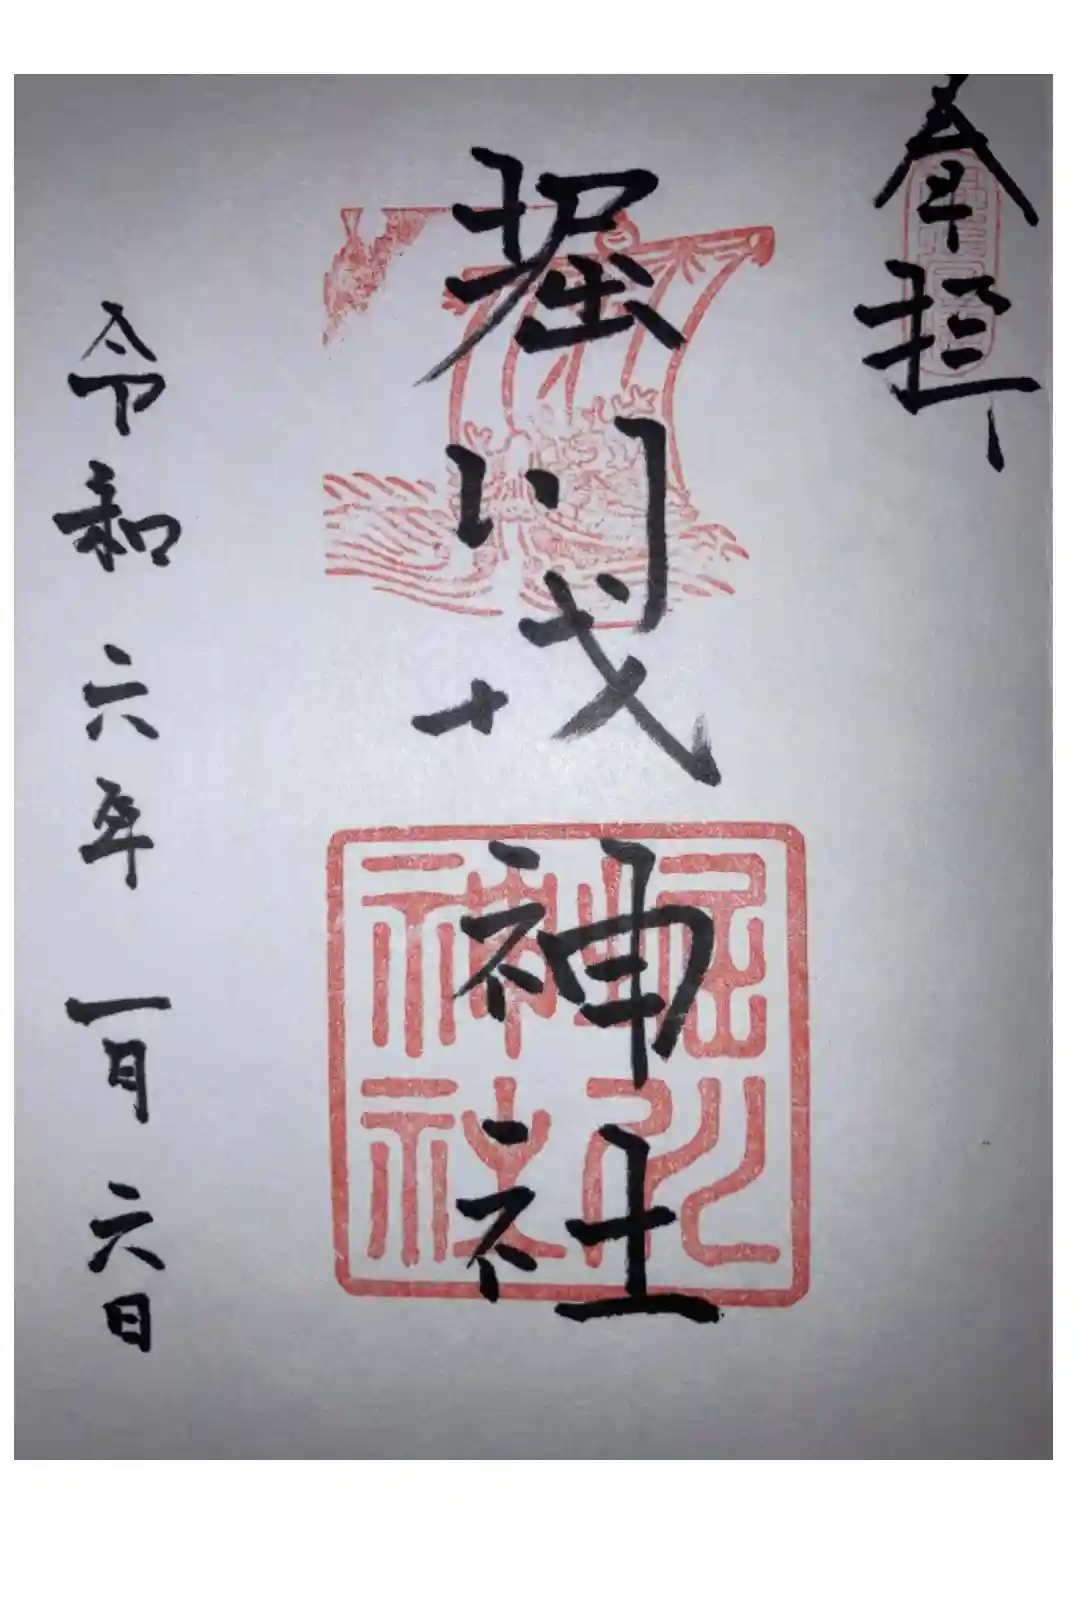 奉拝
堀川戎神社
堀川
神社
令和六年一月六日